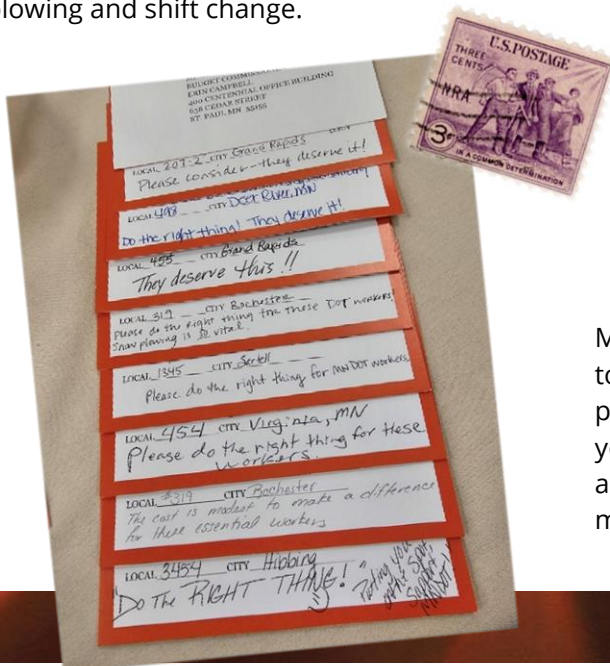 plowing and shift change.
U.S.POSTAGE
THREE
CENTS
NRA
3¢
IN A COMMON DETERMINATION
BUDGET
ERIN CAMPBELL
400 CENTENNIAL OFFICE BUILDING
658 CEDAR STREET
ST. PAUL, MN 55155
LOCAL 207-2 CITY Grand Rapids
Please consider - they deserve it!
LOCAL 498 CITY Deer River, MN
Do the right thing! They deserve it!
LOCAL 455 CITY Grand Rapids
They deserve this!!
LOCAL 319 CITY Rochester
Please do the right thing for these DOT workers,
Snow plowing is so vital.
LOCAL 1345 CITY Sartell
Please do the right thing for MNDOT workers
LOCAL 454 CITY Virginia, MN
Please do the right thing for these
workers.
LOCAL #319 CITY Rochester
The cost is modest to make a difference
for these essential workers
LOCAL 3454 CITY Hibbing
"Do The RIGHT THING!"
M
to
p
y
a
m